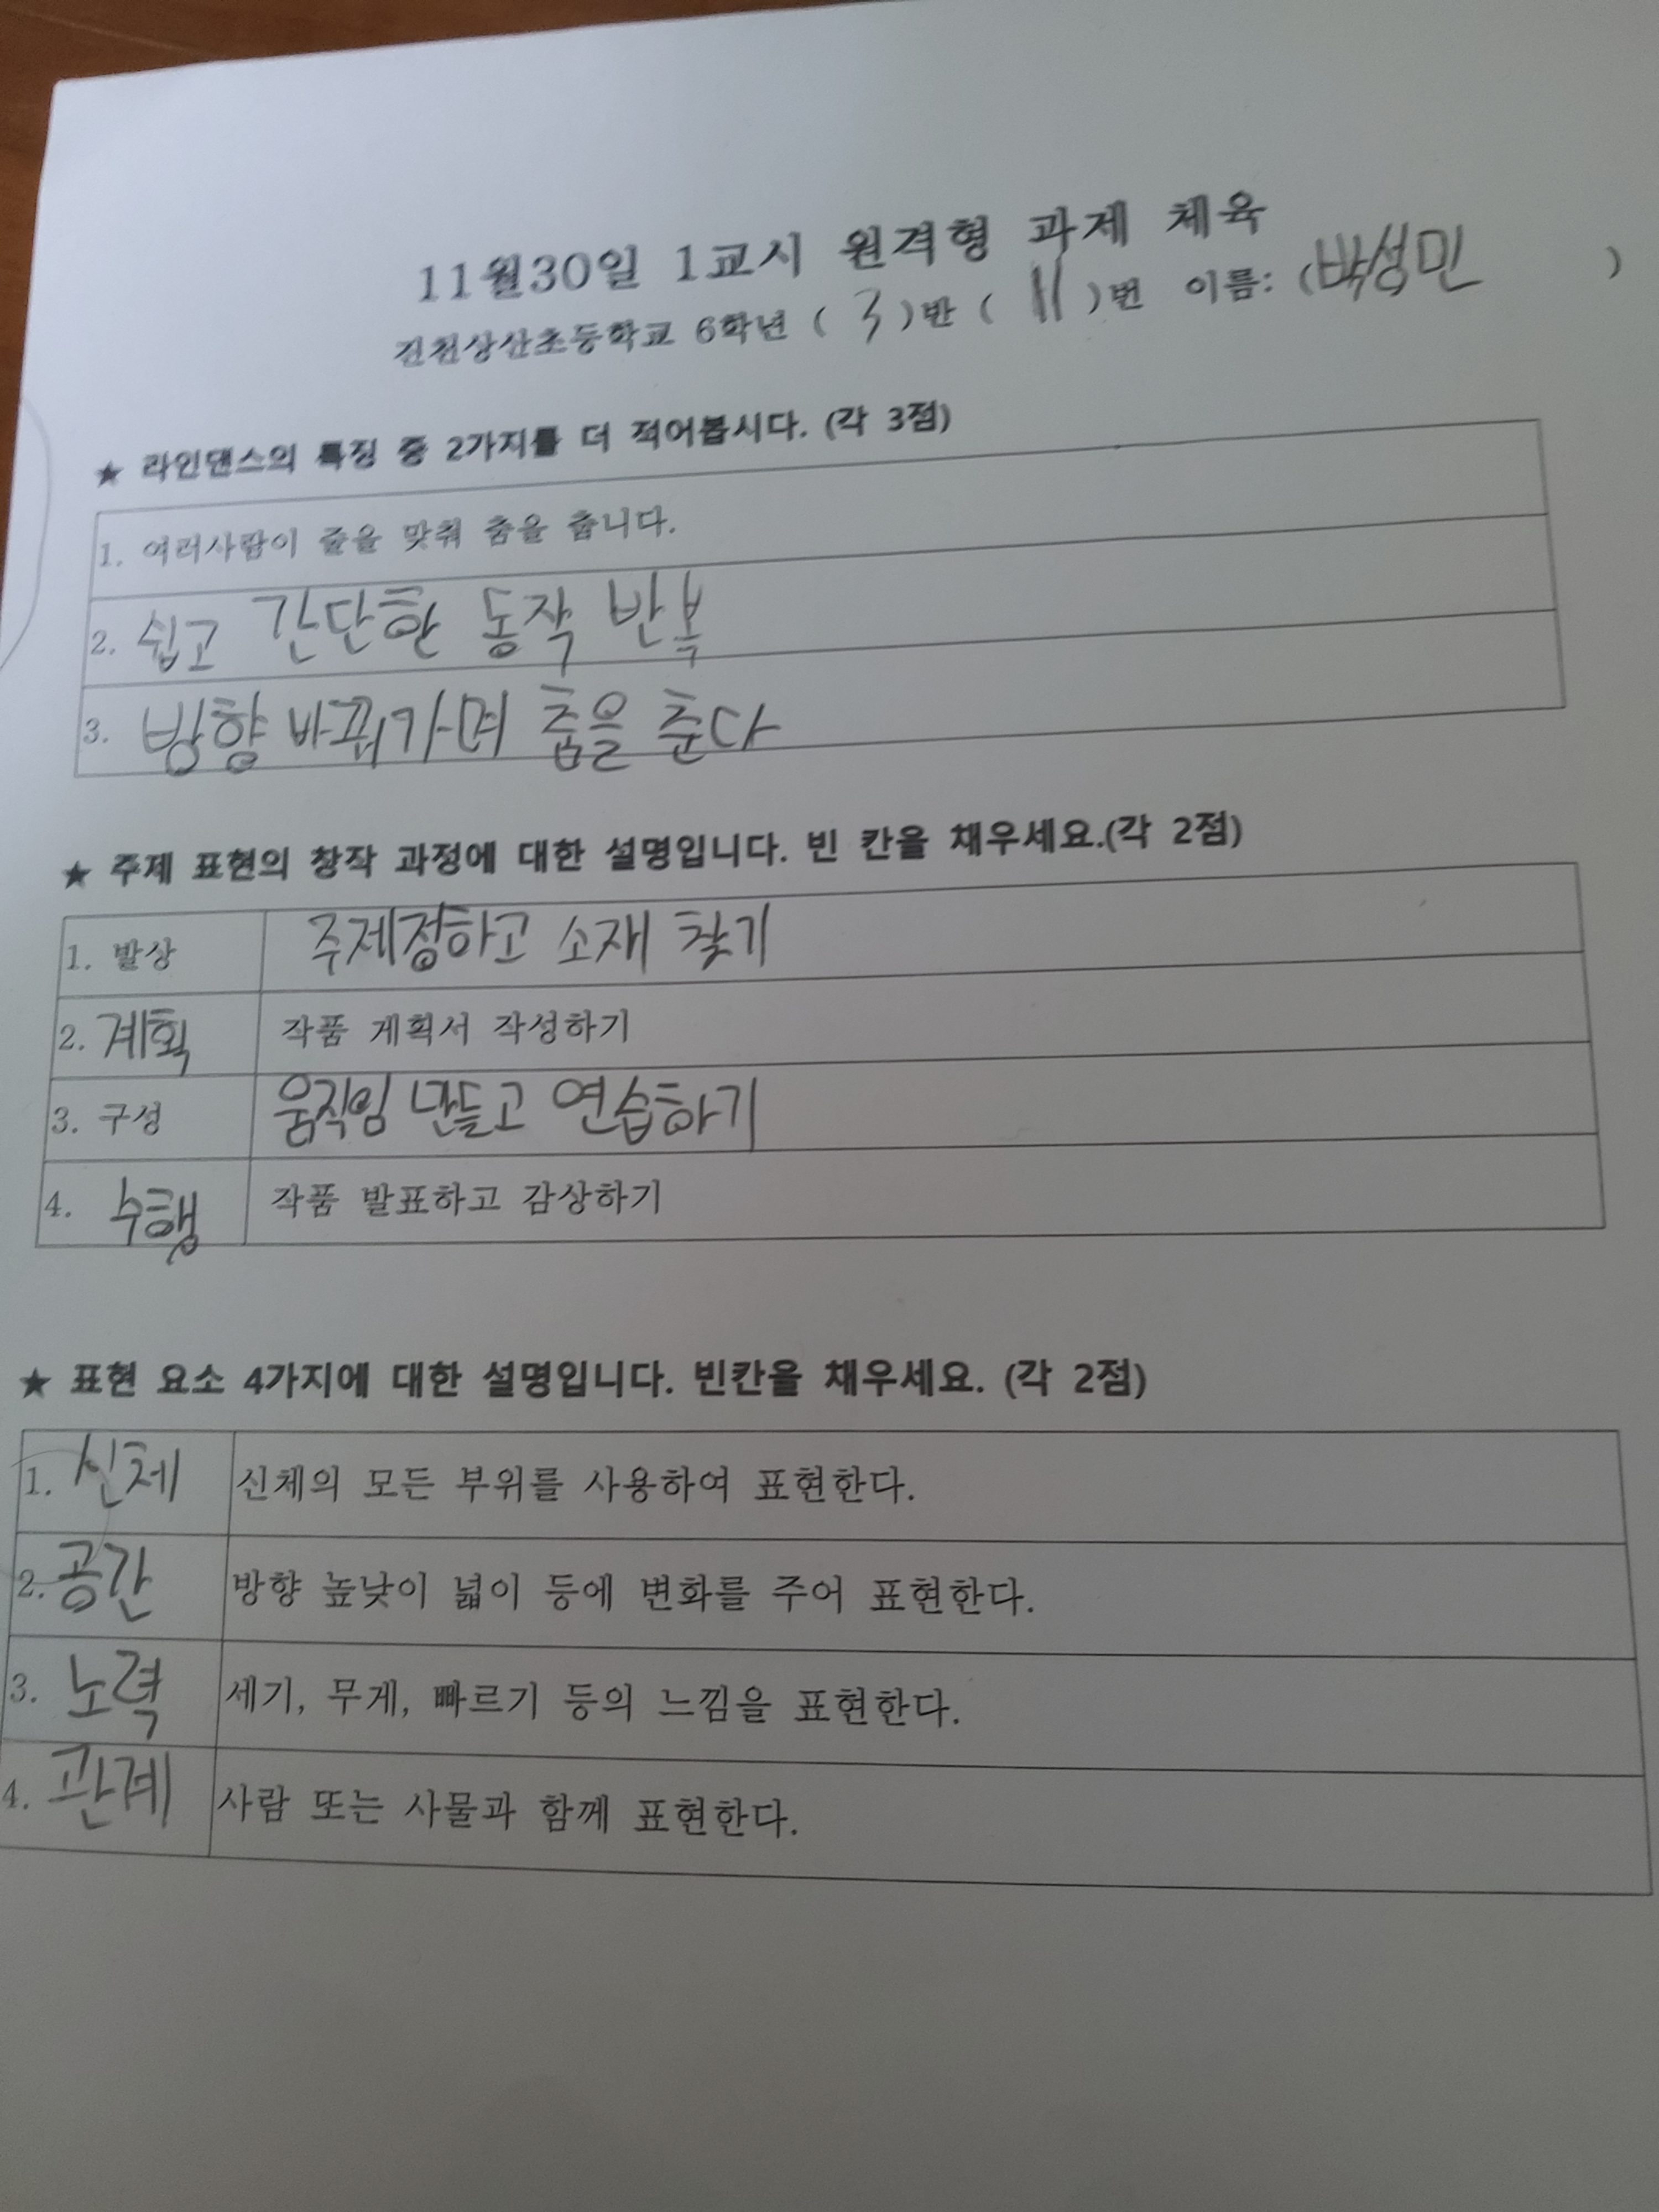 11월30일 1교시 원격형 과제 체육
진천상산초등학교 6학년 ( 3 )반 ( 11 )번 이름: (박성민 )
★ 라인댄스의 특징 중 2가지를 더 적어봅시다. (각 3점)
1. 여러사람이 줄을 맞춰 춤을 춥니다.
2. 쉽고 간단한 동작 반복
3. 방향 바꿔가며 춤을 춘다
★ 주제 표현의 창작 과정에 대한 설명입니다. 빈 칸을 채우세요.(각 2점)
1. 발상 주제정하고 소재 찾기
2. 계획 작품 계획서 작성하기
3. 구성 움직임 만들고 연습하기
4. 수행 작품 발표하고 감상하기
★ 표현 요소 4가지에 대한 설명입니다. 빈칸을 채우세요. (각 2점)
1. 신체 신체의 모든 부위를 사용하여 표현한다.
2. 공간 방향 높낮이 넓이 등에 변화를 주어 표현한다.
3. 노력 세기, 무게, 빠르기 등의 느낌을 표현한다.
4. 관계 사람 또는 사물과 함께 표현한다.